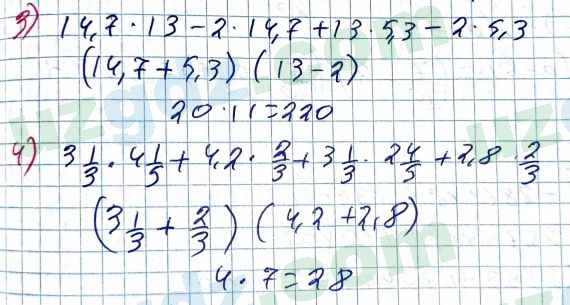 3) 14,7 · 13 − 2 · 14,7 + 13 · 5,3 − 2 · 5,3
(14,7 + 5,3) (13 − 2)
20 · 11 = 220
4) 3 1/3 · 4 1/5 + 4,2 · 2/3 + 3 1/3 · 2 4/5 + 2,8 · 2/3
(3 1/3 + 2/3) (4,2 + 2,8)
4 · 7 = 28